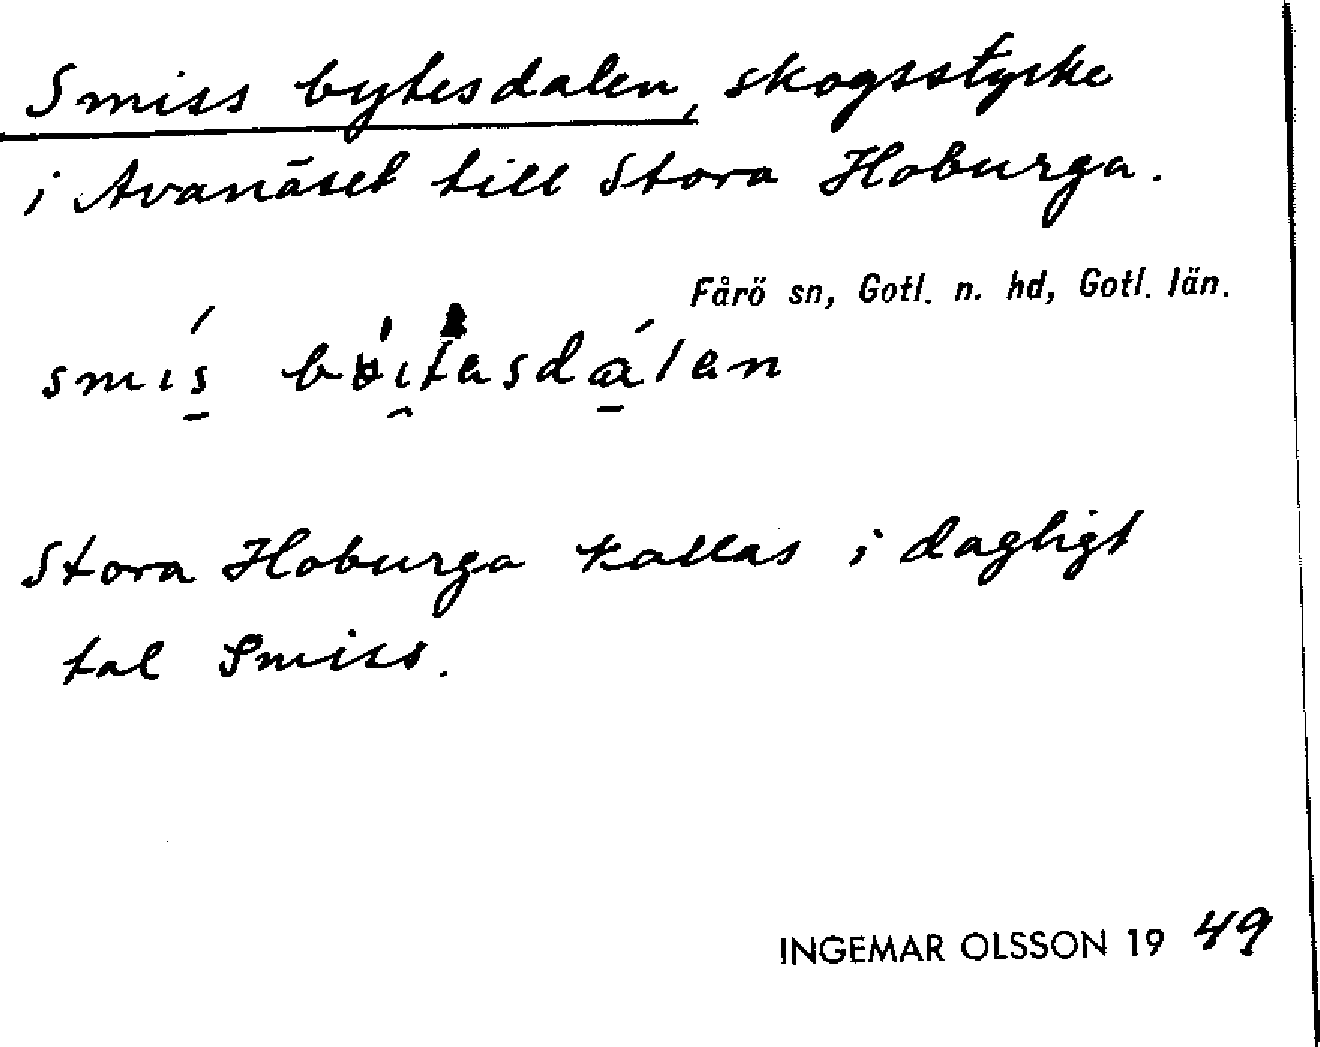 Smiss bytesdalen, skogsstycke
i Avanäset till Stora Hoburga.
Fårö sn, Gotl. n. hd, Gotl. län.
smis
Stora Hoburga kallas i dagligt
tal Smiss.
INGEMAR OLSSON 19 49